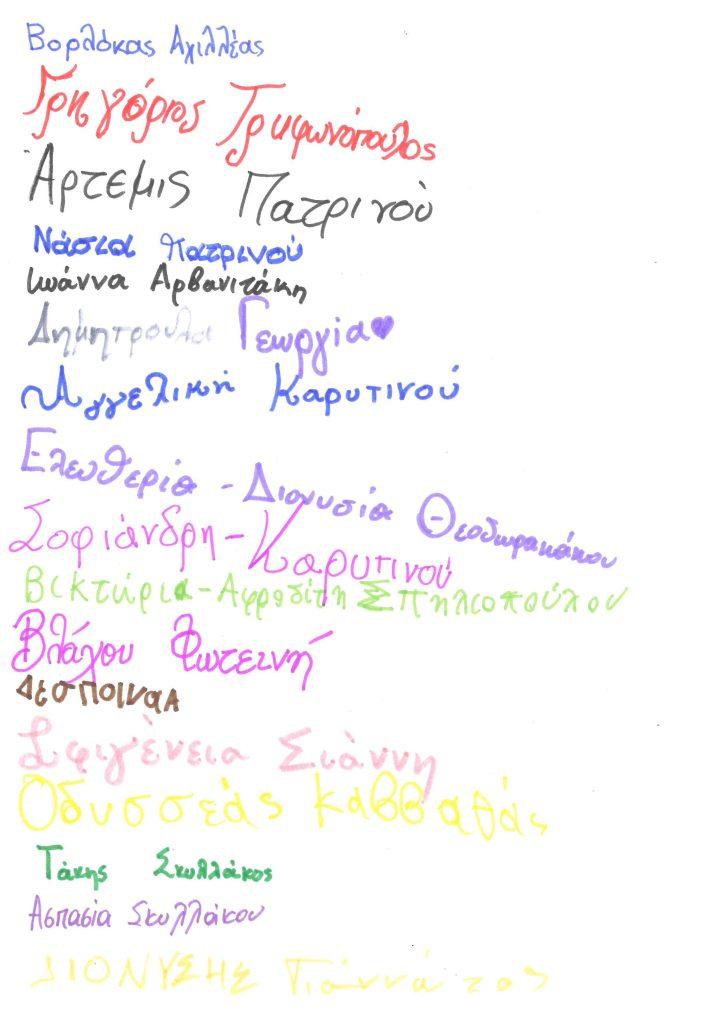 Βορλόκας Αχιλλέας
Γρηγόρης Τρυφωνόπουλος
Άρτεμις Πατρινού
Νάσια Πατρινού
Ιωάννα Αρβανιτάκη
Δημητρούλα Γεωργία
Αγγελική Καρυτινού
Ελευθερία - Διονυσία Θεοδωρακάκου
Σοφιάνδρη - Καρυτινού
Βικτώρια - Αφροδίτη Σπηλιοπούλου
Βλάχου Φωτεινή
ΔέσΠΟΙναΑ
Ιφιγένεια Σιάννη
Οδυσσέάς Καββαθάς
Τάκης Σκυλλάκος
Ασπασία Σκυλλάκου
ΔΙΟΝΥΣΗΣ Γιάννάτος